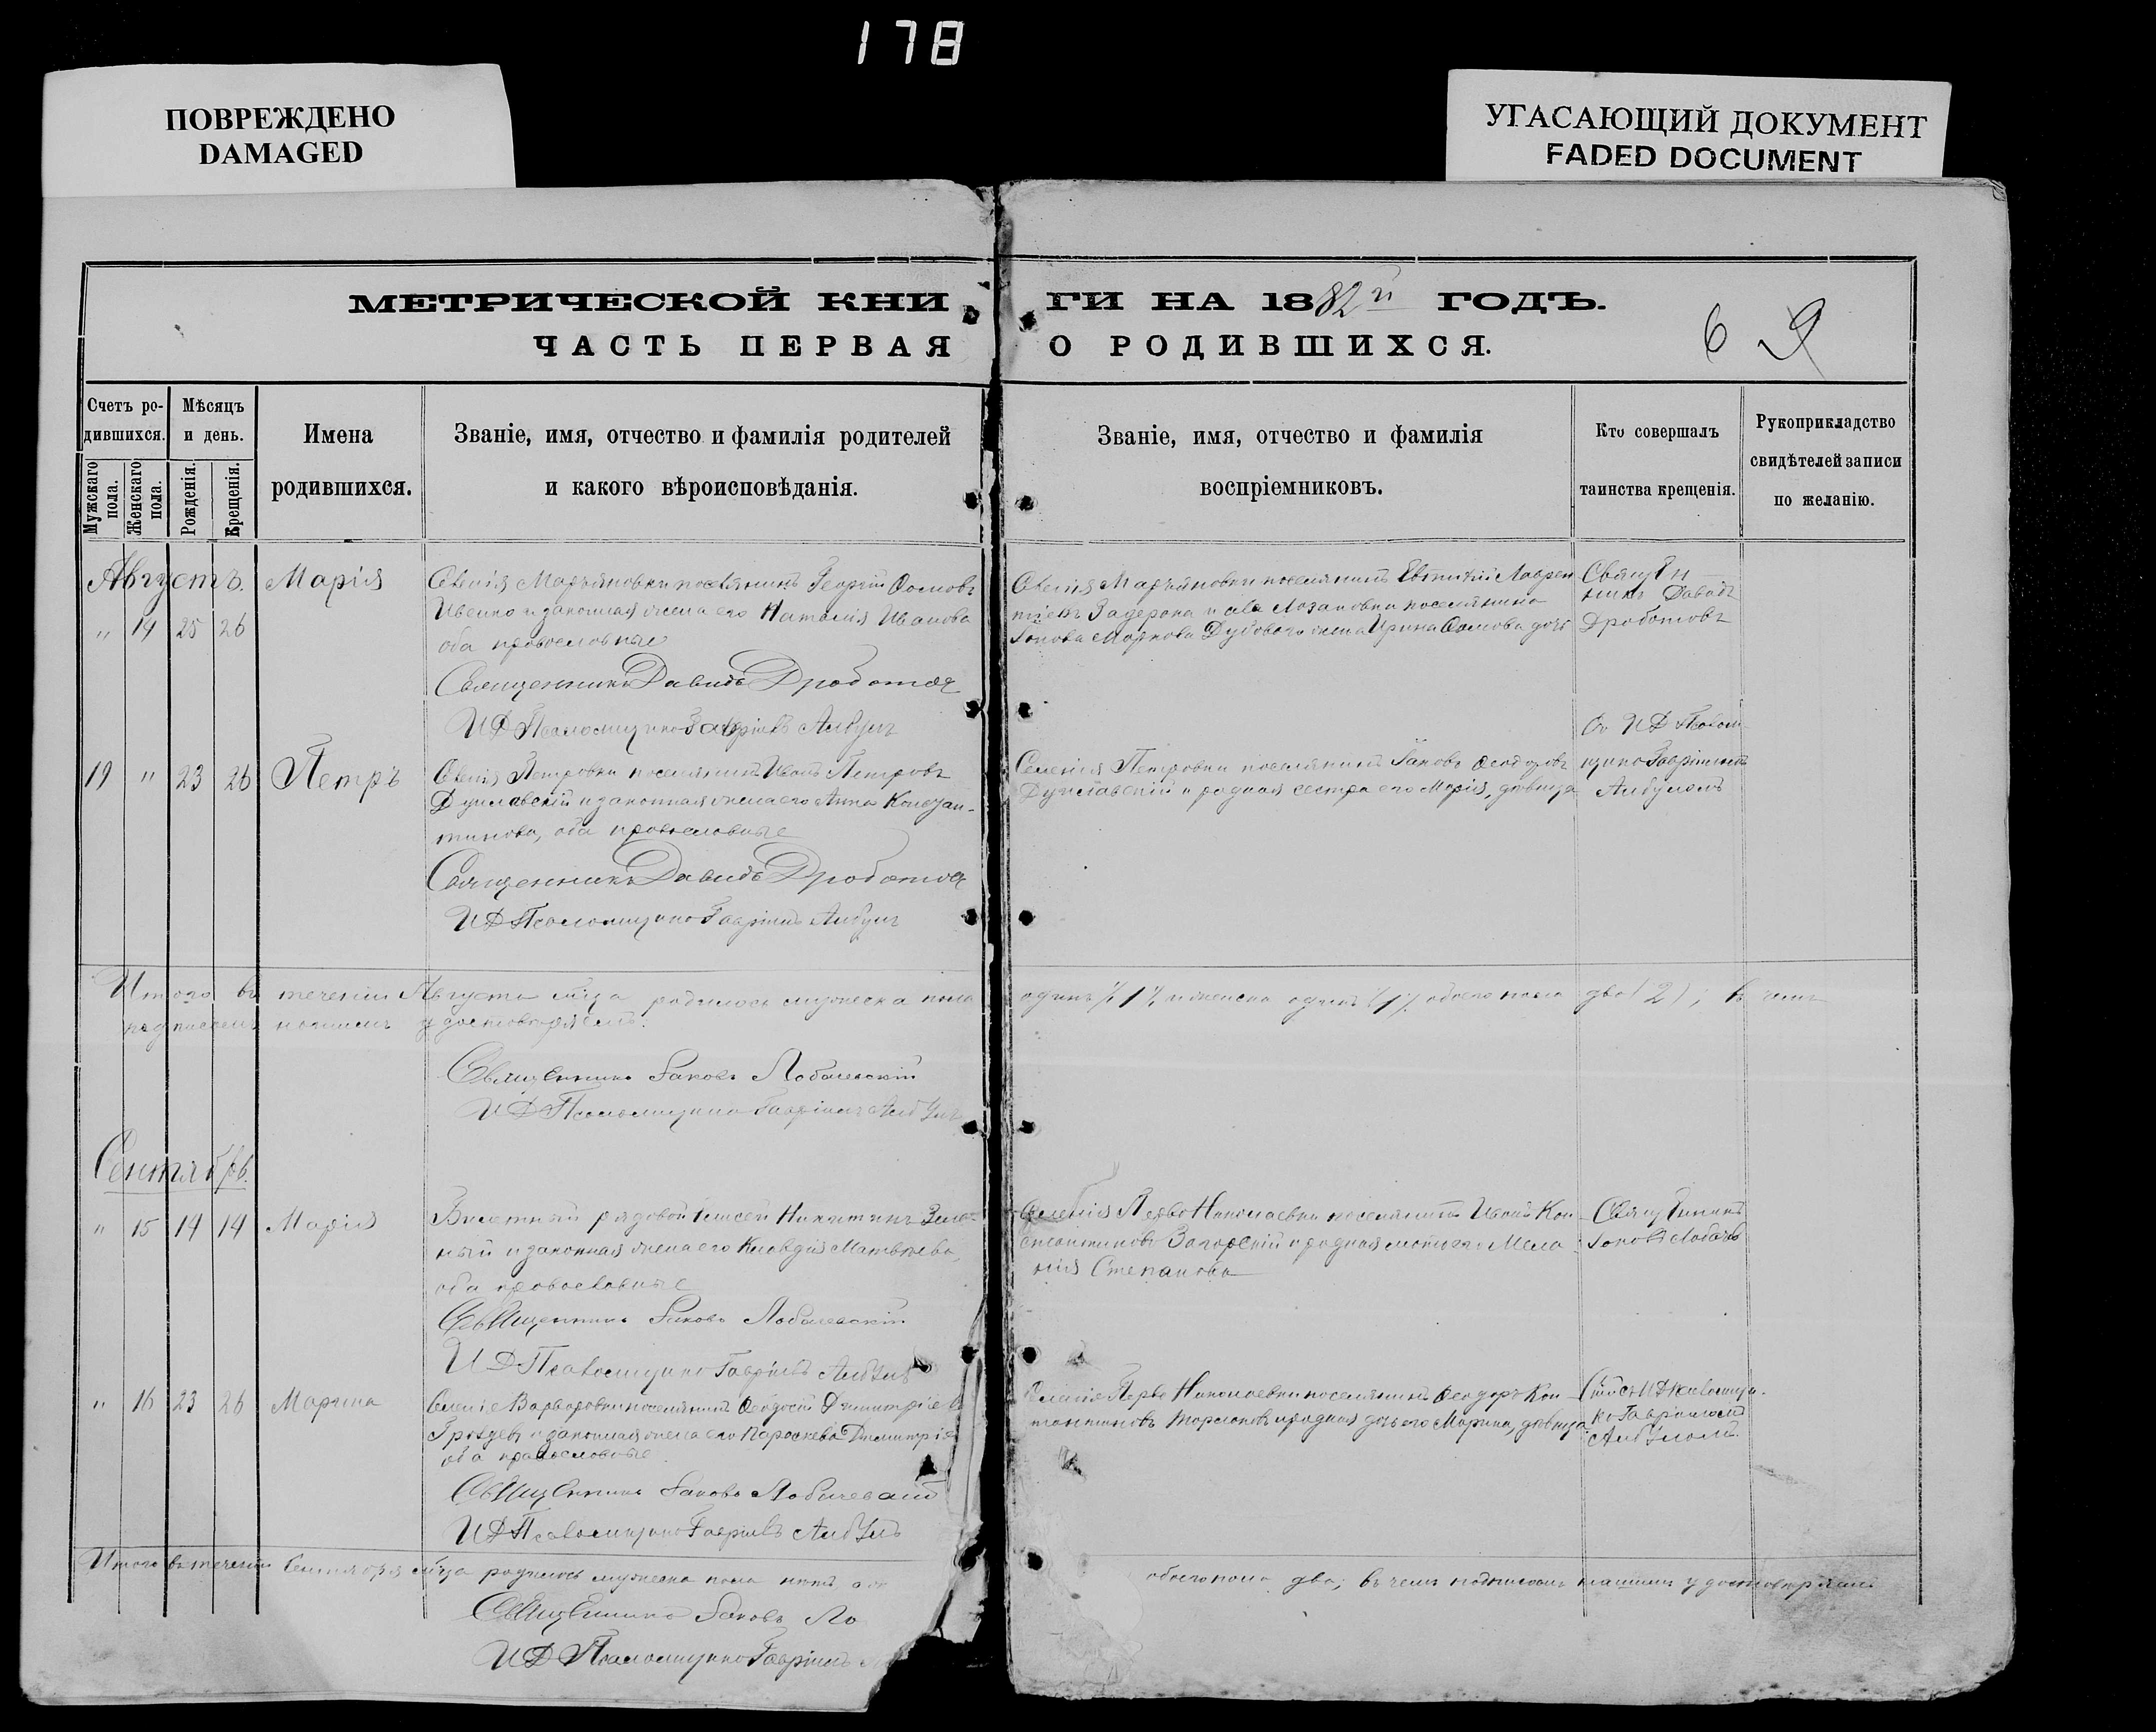 178
ПОВРЕЖДЕНО
DAMAGED
УГАСАЮЩИЙ ДОКУМЕНТ
FADED DOCUMENT
МЕТРИЧЕСКОЙ КНИГИ НА 1882й ГОДЪ.
ЧАСТЬ ПЕРВАЯ О РОДИВШИХСЯ.
6 9
Счетъ родившихся.
Мужскаго пола.
Женскаго пола.
Мѣсяцъ и день.
Рожденія.
Крещенія.
Имена родившихся.
Званіе, имя, отчество и фамилія родителей
и какого вѣроисповѣданія.
Званіе, имя, отчество и фамилія
воспріемниковъ.
Кто совершалъ
таинства крещенія.
Рукоприкладство
свидѣтелей записи
по желанію.
Августъ.
" 14 25 26
Марія
Селенія Марьяновки поселянинъ Георгій Фомовъ
Ивенко и законная жена его Наталія Иванова
оба православные
Священникъ Давидъ Дроботов
И Д Псаломщика Гавріилъ
Селенія Марьяновки поселянинъ Евтихій Лаврен
тіевъ Задерона и села Лозановки поселянина
Іакова Маркова Дубоваго жена Ирина Фомова дочь
Священ
никъ Давидъ
Дроботовъ
19 " 23 26
Петръ
Селенія Петровки поселянинъ Иванъ Петровъ
и законная жена его Анна Констан-
тинова, оба православные
Священникъ Давидъ Дроботов
И Д Псаломщика Гавріилъ
Селенія Петровки поселянинъ Іаковъ Феодоровъ
и родная сестра его Марія, дѣвица
И Д Псалом
щика Гавріиломъ
Итого въ теченіи Августа м-ца родилось мужеска пола одинъ /1/ и женска одинъ /1/ обоего пола два (2); въ чемъ
подписомъ нашимъ удостовѣряемъ.
Священникъ Іаковъ Лобачевскій
И Д Псаломщика Гавріилъ
Сентябрь.
" 15 14 14
Марія
Билетный рядовой Никитинъ
и законная жена его Клавдія Матвѣева,
оба православные
Священникъ Іаковъ Лобачевскій
И Д Псаломщика Гавріилъ
Селенія Перво Николаевки поселянинъ Иванъ Кон
стантиновъ Загорскій и родная мать его Мела
нія Степанова
Священникъ
Іаковъ Лобачев
" 16 23 26
Марина
Селенія Варваровки поселянинъ Феодосій Димитріевъ
и законная жена его Параскева Димитріе
оба православные
Священникъ Іаковъ Лобачевскій
И Д Псаломщика Гавріилъ
Селенія Перво Николаевки поселянинъ Феодоръ Кон
стантиновъ и родная дочь его Марина, дѣвица
И Д Псаломщи
ка Гавріиломъ
Итого въ теченіи Сентября м-ца родилось мужеска пола нѣтъ, обоего пола два; въ чемъ подписомъ нашимъ удостовѣряемъ
Священникъ Іаковъ Ло
И Д Псаломщика Гавріилъ